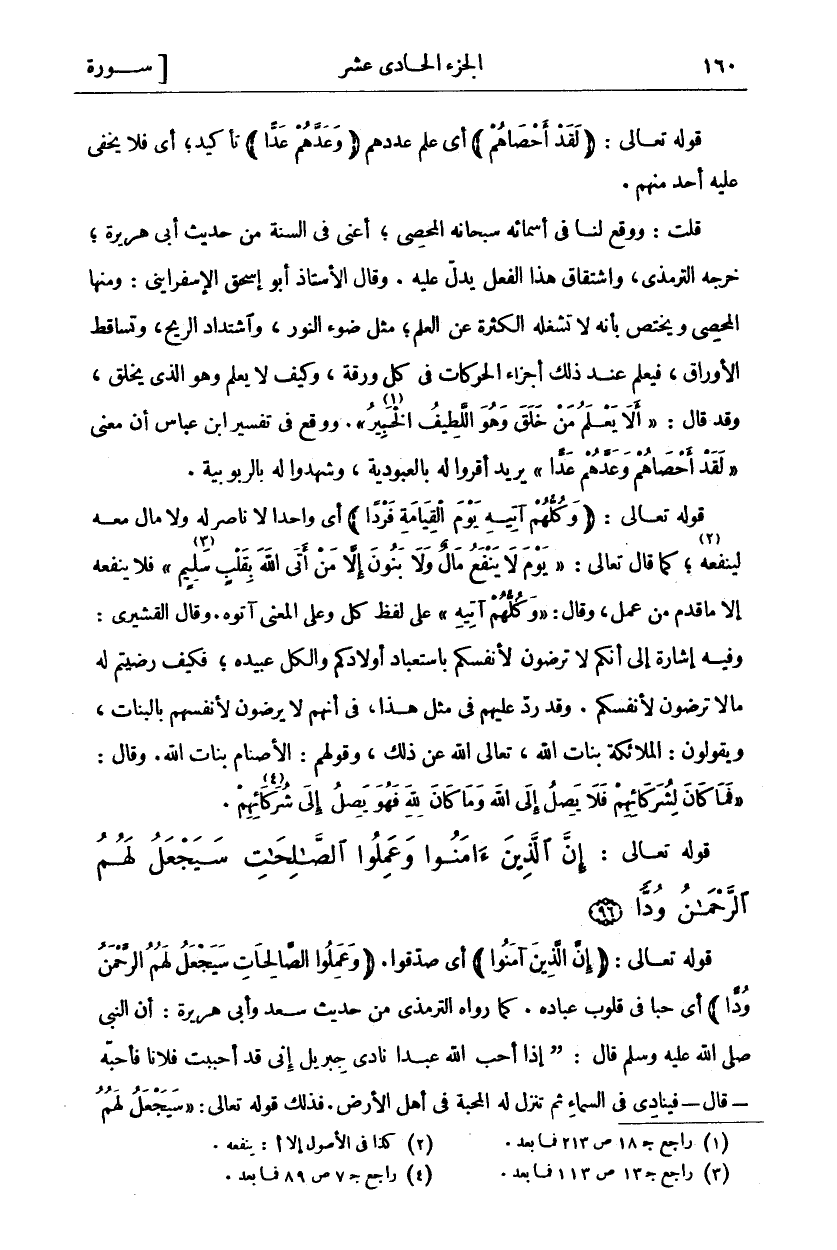 ١٦٠ الجزء الحادى عشر [ ســورة
قوله تعـالى : ﴿ لَقَدْ أَحْصَاهُمْ ﴾ أى علم عددهم ﴿ وَعَدَّهُمْ عَدًّا ﴾ تأكيد؛ أى فلا يخفى
عليه أحد منهم .
قلت : ووقع لنـا فى أسمائه سبحانه المحصِى ؛ أعنى فى السنة من حديث أبى هريرة ؛
خرجه الترمذى، واشتقاق هذا الفعل يدلّ عليه . وقال الأستاذ أبو إسحق الإسفراينى : ومنها
المحصِى ويختص بأنه لا تشغله الكثرة عن العلم؛ مثل ضوء النور ، وٱشتداد الريح، وتساقط
الأوراق ، فيعلم عنـد ذلك أجزاء الحركات فى كل ورقة ، وكيف لا يعلم وهو الذى يخلق ،
وقد قال : « أَلَا يَعْـلَمُ مَنْ خَلَقَ وَهُوَ اللَّطِيفُ الْخَبِيرُ (١)». ووقع فى تفسير ابن عباس أن معنى
« لَقَدْ أَحْصَاهُمْ وَعَدَّهُم عَدًّا » يريد أقروا له بالعبودية ، وشهدوا له بالربوبية .
قوله تعـالى : ﴿ وَكُلُّهُمْ آتِيـهِ يَوْمَ الْقِيَامَةِ فَرْدًا ﴾ أى واحدا لا ناصر له ولا مال معـه
لينفعه (٢) ؛ كما قال تعالى : « يَوْمَ لَا يَنْفَعُ مَالٌ وَلَا بَنُونَ إِلَّا مَنْ أَتَى اللَّهَ بِقَلْبٍ سَلِيمٍ (٣) » فلا ينفعه
إلا ما قدم من عمل، وقال: «وَكُلُّهُمْ آتِيهِ » على لفظ كل وعلى المعنى آتوه. وقال القشيرى :
وفيـه إشارة إلى أنكم لا ترضون لأنفسكم باستعباد أولادكم والكل عبيده ؛ فكيف رضيتم له
مالا ترضون لأنفسكم . وقد ردّ عليهم فى مثل هـذا، فى أنهم لا يرضون لأنفسهم بالبنات ،
ويقولون : الملائكة بنات الله ، تعالى الله عن ذلك ، وقولهم : الأصنام بنات الله. وقال :
«فَمَا كَانَ لِشُرَكَائِهِمْ فَلَا يَصِلُ إِلَى اللَّهِ وَمَا كَانَ لِلَّهِ فَهُوَ يَصِلُ إِلَى شُرَكَائِهِمْ (٤) .
قوله تعـالى : إِنَّ ٱلَّذِينَ ءَامَنُـوا وَعَمِلُوا ٱلصَّـٰلِحَـٰتِ سَـيَجْعَلُ لَهُـمُ
ٱلرَّحْمَـٰنُ وُدًّا ٩٦
قوله تعـالى : ﴿ إِنَّ الَّذِينَ آمَنُوا ﴾ أى صدّقوا. ﴿ وَعَمِلُوا الصَّالِحَاتِ سَيَجْعَلُ لَهُمُ الرَّحْمَنُ
وُدًّا ﴾ أى حبا فى قلوب عباده . كما رواه الترمذى من حديث سـعد وأبى هريرة : أن النبى
صلى الله عليه وسلم قال : ” إذا أحب الله عبـدا نادى جبريل إنى قد أحببت فلانا فأحبّه
— قال — فينادِى فى السماء ثم تنزل له المحبة فى أهل الأرض. فذلك قوله تعالى: «سَيَجْعَلُ لَهُمُ
(١) راجع جـ ١٨ ص ٢١٣ فـا بعد . (٢) كذا فى الأصول إلا أ : ينفعه .
(٣) راجع جـ ١٣ ص ١١٣ فـا بعد . (٤) راجع جـ ٧ ص ٨٩ فـا بعد .